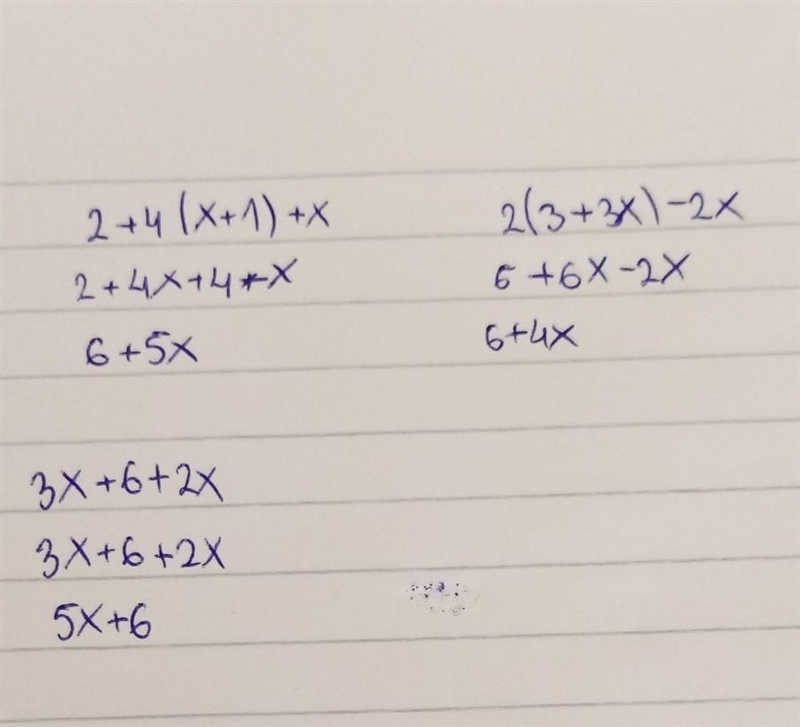 2+4(x+1)+x
2+4x+4+x
6+5x
2(3+3x)-2x
6+6x-2x
6+4x
3x+6+2x
3x+6+2x
5x+6